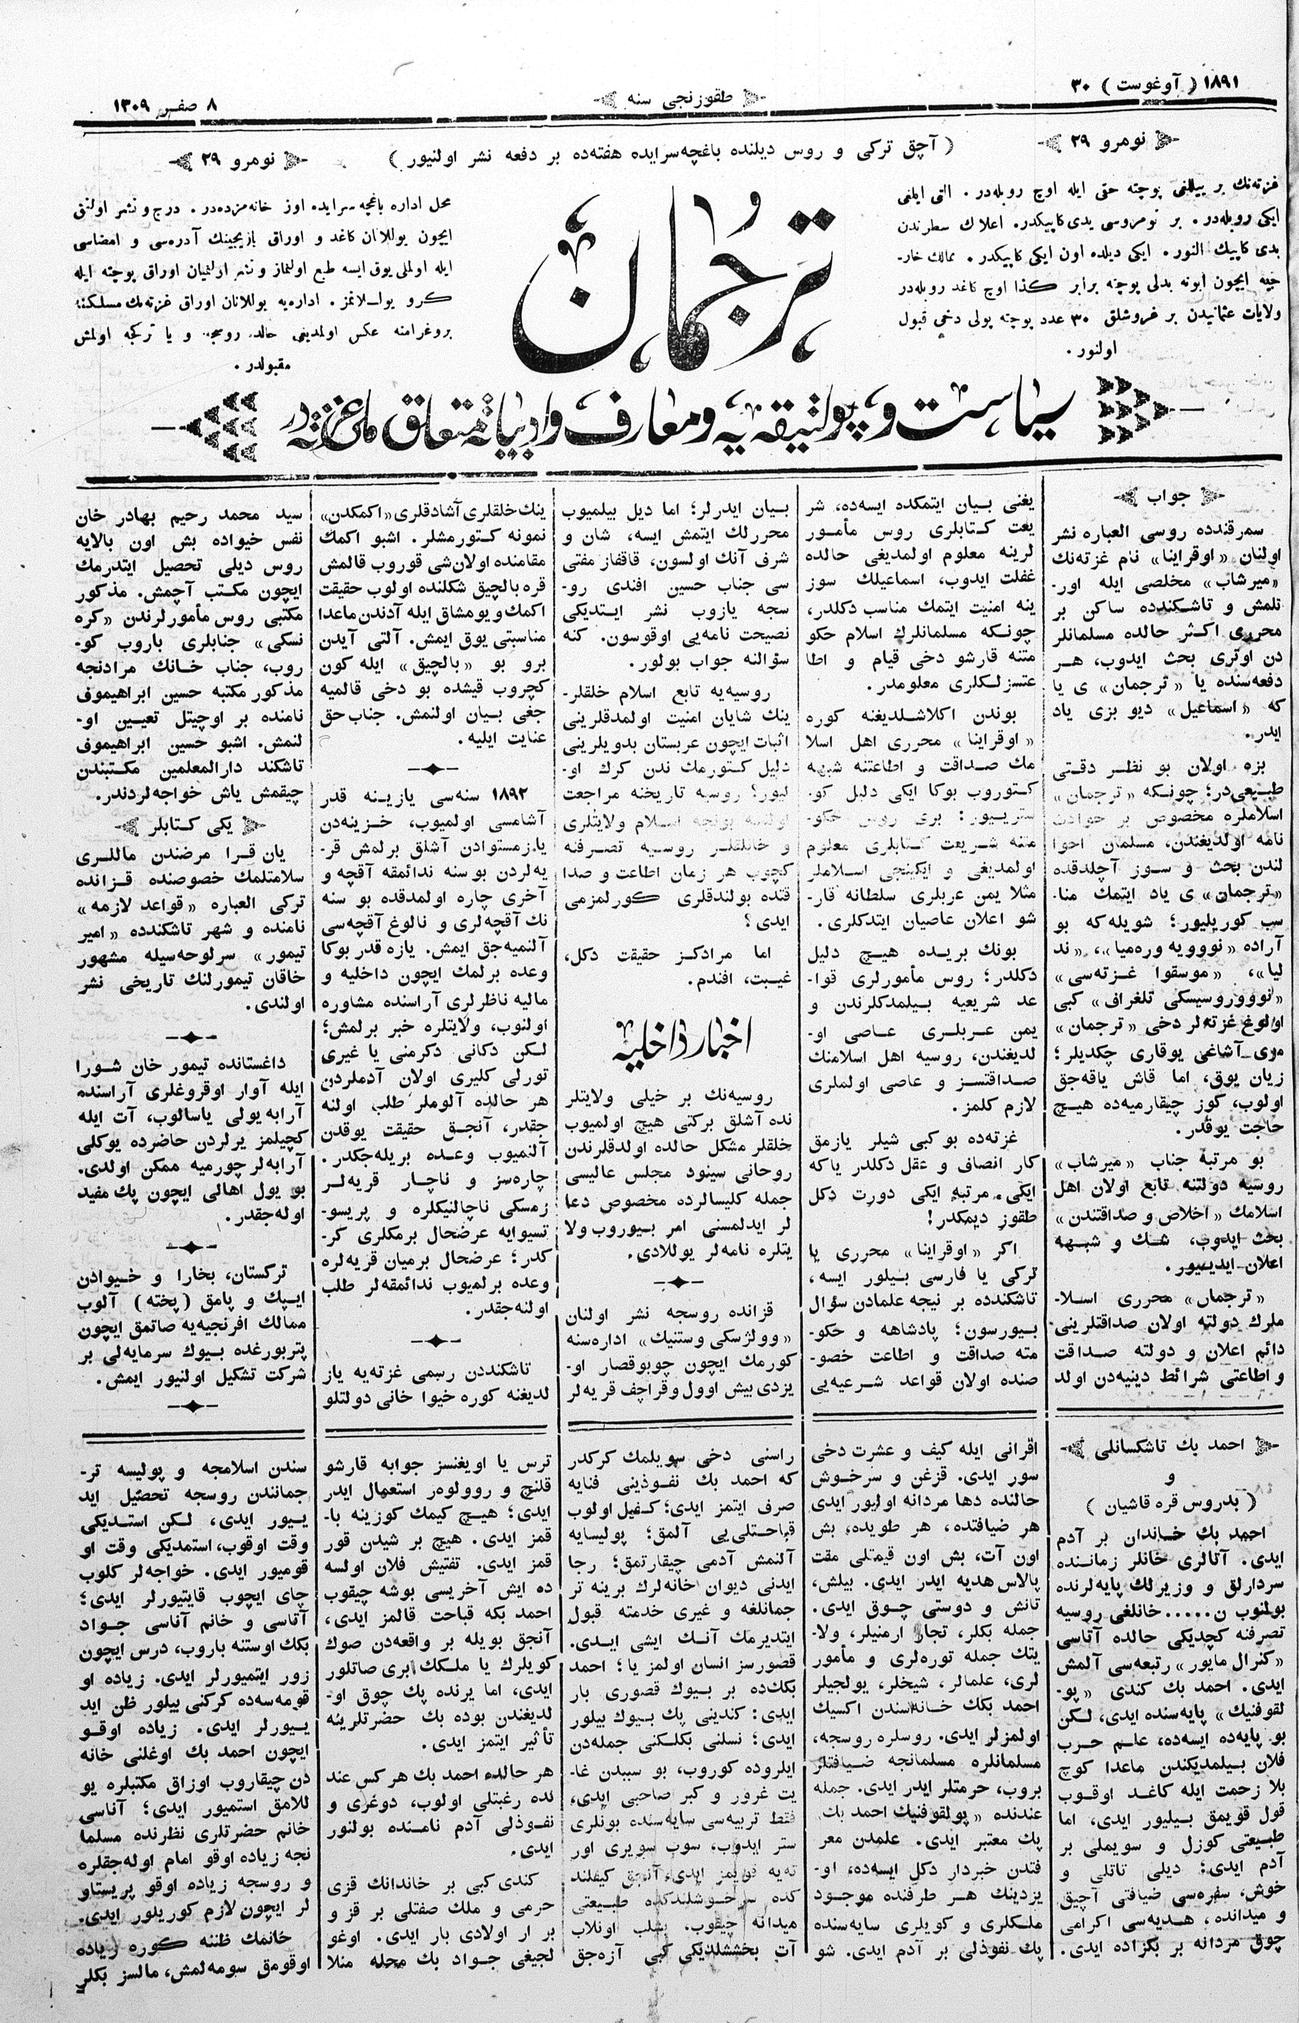 ١٨٩١ ( آوغوست ) ٣٠
طقوزنجی سنه
٨ صفر ١٣٠٩
نومرو ٢٩
( آچق ترکی و روس دیلنده باغچه‌سرایده هفته‌ده بر دفعه نشر اولنیور )
نومرو ٢٩
غزته‌نك بر ییللغی پوچته حقی ایله اوچ روبله‌در . التی ایلغی
ایکی روبله‌در . بر نومروسی یدی کاپیکدر . اعلانك سطرندن
یدی کاپیك النور . ایکی دیلده اون ایکی کاپیکدر . ممالك خار-
جیه ایچون ابونه بدلی پوچته برابر کذا اوچ کاغد روبله‌در
ولایات عثمانیدن بر غروشلق ٣٠ عدد پوچته پولی دخی قبول
اولنور .
ترجمان
محل اداره باغچه سرایده اوز خانه‌مزده‌در . درج و نشر اولنق
ایچون یوللانان کاغد و اوراق یازیجینك آدره‌سی و امضاسی
ایله اولملی یوق ایسه طبع اولنماز و نشر اولنمیان اوراق پوچته ایله
کرو یوللانمز . اداره‌یه یوللانان اوراق غزته‌مك مسلکنه
پروغرامنه عکس اولمدیغی حالده روسجه و یا ترکجه اولمش
مقبولدر .
سیاست و پولتیقه‌یه و معارف و ادبیاته متعلق ملی غزته‌در
جواب
سمرقندده روسی العباره نشر
اولنان «اوقراینا» نام غزته‌نك
«میرشاب» مخلصی ایله اور-
تلمش و تاشکندده ساکن بر
محرری اکثر حالده مسلمانلر
دن اوتری بحث ایدوب، هر
دفعه‌سنده یا «ترجمان» ی یا
که «اسماعیل» دیو بزی یاد
ایدر.
بزه اولان بو نظر دقتی
طبیعی‌در؛ چونکه «ترجمان»
اسلاملره مخصوص بر حوادث
نامه اولدیغندن، مسلمان احوا
لندن بحث و سوز آچلدقده
«ترجمان» ی یاد ایتمك منا-
سب کوریلیور؛ شویله‌که بو
آراده «نوویه وره‌میا»، «ند
لیا»، «موسقوا غزته‌سی»
«نووروسیسکی تلغراف» کبی
اولوغ غزته‌لر دخی «ترجمان»
می آشاغی یوقاری چکدیلر؛
زیان یوق، اما قاش یاقه‌جق
اولوب، کوز چیقارمیه‌ده هیچ
حاجت یوقدر.
بو مرتبه جناب «میرشاب»
روسیه دولتنه تابع اولان اهل
اسلامك «اخلاص و صداقتندن»
بحث ایدوب، شك و شبهه
اعلان ایدییور.
«ترجمان» محرری اسلا-
ملرك دولته اولان صداقتلرینی
دائم اعلان و دولته صداقت
و اطاعتی شرائط دینیه‌دن اولد
یغنی بیان ایتمکده ایسه‌ده، شر
یعت کتابلری روس مأمور
لرینه معلوم اولمدیغی حالده
غفلت ایدوب، اسماعیلك سوز
ینه امنیت ایتمك مناسب دکلدر،
چونکه مسلمانلرك اسلام حکو
متنه قارشو دخی قیام و اطا
عتسزلکلری معلومدر.
بوندن اکلاشلدیغنه کوره
«اوقراینا» محرری اهل اسلا
مك صداقت و اطاعتنه شبهه
کتوروب بوکا ایکی دلیل کو-
ستریور: بری روس حکو-
متنه شریعت کتابلری معلوم
اولمدیغی و ایکینجی اسلاملر
مثلا یمن عربلری سلطانه قار-
شو اعلان عاصیان ایتدکلری.
بونك بریده هیچ دلیل
دکلدر؛ روس مأمورلری قوا-
عد شریعیه بیلمدکلرندن و
یمن عربلری عاصی او-
لدیغندن، روسیه اهل اسلامنك
صداقتسز و عاصی اولملری
لازم کلمز.
غزته‌ده بو کبی شیلر یازمق
کار انصاف و عقل دکلدر یاکه
ایکی مرتبه ایکی دورت دکل
طقوز دیمکدر!
اکر «اوقراینا» محرری یا
ترکی یا فارسی بیلور ایسه،
تاشکندده بر نیجه علمادن سؤال
بیورسون؛ پادشاهه و حکو-
مته صداقت و اطاعت خصو-
صنده اولان قواعد شرعیه‌یی
بیان ایدرلر؛ اما دیل بیلمیوب
محررلك ایتمش ایسه، شان و
شرف آنك اولسون، قافقاز مفتی
سی جناب حسین افندی رو-
سجه یازوب نشر ایتدیکی
نصیحت نامه‌یی اوقوسون. کنه
سؤالنه جواب بولور.
روسیه‌یه تابع اسلام خلقلر-
ینك شایان امنیت اولمدقلرینی
اثبات ایچون عربستان بدویلرینی
دلیل کتورمك ندن کرك او-
لیور؟ روسیه تاریخنه مراجعت
اولنسه بونجه اسلام ولایتلری
و خانلقلر روسیه تصرفنه
کچوب هر زمان اطاعت و صدا
قتده بولندقلری کورلمزمی
ایدی؟
اما مرادکز حقیقت دکل،
غیبت، افندم.
اخبار داخلیه
روسیه‌نك بر خیلی ولایتلر
نده آشلق برکتی هیچ اولمیوب
خلقلر مشکل حالده اولدقلرندن
روحانی سینود مجلس عالیسی
جمله کلیسالرده مخصوص دعا
لر ایدلمسنی امر بیوروب ولا
یتلره نامه‌لر یوللادی.
قزانده روسجه نشر اولنان
«وولژسکی وستنیك» اداره‌سنه
کورمك ایچون چوبوقصار او-
یزدی بیش اوول وقراچف قریه‌لر
ینك خلقلری آشادقلری «اکمکدن»
نمونه کتورمشلر. اشبو اکمك
مقامنده اولان‌شی قوروب قالمش
قره بالچیق شکلنده اولوب حقیقت
اکمك و یومشاق ایله آدندن ماعدا
مناسبتی یوق ایمش. آلتی آیدن
برو بو «بالچیق» ایله کون
کچروب قیشده بو دخی قالمیه
جغی بیان اولنمش. جناب حق
عنایت ایلیه.
١٨٩٢ سنه‌سی یازینه قدر
آشامسی اولمیوب، خزینه‌دن
یازمستوادن آشلق برلمش قر-
یه‌لردن بو سنه ندائمقه آقچه و
آخری چاره اولمدقده بو سنه
نك آقچه‌لری و نالوغ آقچه‌سی
آلنمیه‌جق ایمش. یازه قدر بوکا
وعده برلمك ایچون داخلیه و
مالیه ناظرلری آراسنده مشاوره
اولنوب، ولایتلره خبر برلمش؛
لکن دکانی دکرمنی یا غیری
تورلی کلیری اولان آدملردن
هر حالده آلوملر طلب اولنه
جقدر، آنجق حقیقت یوقدن
آلنمیوب وعده بریله‌جکدر.
چاره‌سز و ناچار قریه‌لر
زمسکی ناچالنیکلره و پریسو-
تسیوایه عرضحال برمکلری کر-
کدر؛ عرضحال برمیان قریه‌لره
وعده برلمیوب ندائمقه‌لر طلب
اولنه‌جقدر.
تاشکنددن رسمی غزته‌یه یاز
لدیغنه کوره خیوا خانی دولتلو
سید محمد رحیم بهادر خان
نفس خیواده بش اون بالایه
روس دیلی تحصیل ایتدرمك
ایچون مکتب آچمش. مذکور
مکتبی روس مأمورلرندن «کره
نسکی» جنابلری باروب کو-
روب، جناب خانك مرادنجه
مذکور مکتبه حسین ابراهیموف
نامنده بر اوچیتل تعیین او-
لنمش. اشبو حسین ابراهیموف
تاشکند دارالمعلمین مکتبندن
چیقمش یاش خواجه‌لردندر.
یکی کتابلر
یان قرا مرضندن ماللری
سلامتلمك خصوصنده قزانده
ترکی العباره «قواعد لازمه»
نامنده و شهر تاشکندده «امیر
تیمور» سرلوحه‌سیله مشهور
خاقان تیمورلنك تاریخی نشر
اولندی.
داغستانده تیمور خان شورا
ایله آوار اوقروغلری آراسنده
آرابه یولی یاسالوب، آت ایله
کچیلمز یرلردن حاضرده یوکلی
آرابه‌لر چورمیه ممکن اولدی.
بو یول اهالی ایچون پك مفید
اوله‌جقدر.
ترکستان، بخارا و خیوادن
ایپك و پامق (پخته) آلوب
ممالك افرنجیه‌یه صاتمق ایچون
پتربورغده بیوك سرمایه‌لی بر
شرکت تشکیل اولنیور ایمش.
احمد بك تاشکسانلی
و
( بدروس قره قاشیان )
احمد بك خاندان بر آدم
ایدی. آتالری خانلر زماننده
سردارلق و وزیرلك پایه‌لرنده
بولنوب ن..... خانلغی روسیه
تصرفنه کچدیکی حالده آتاسی
«کنرال مایور» رتبه‌سی آلمش
ایدی. احمد بك کندی «پو-
لقوفنیك» پایه‌سنده ایدی، لکن
بو پایه‌ده ایسه‌ده، علم حرب
فلان بیلمدیکندن ماعدا کوچ
بلا زحمت ایله کاغد اوقوب
قول قویمق بیلیور ایدی، اما
طبیعتی کوزل و سویملی بر
آدم ایدی؛ دیلی تاتلی و
خوش، سفره‌سی ضیافتی آچیق
و میدانده، هدیه‌سی اکرامی
چوق مردانه بر بکزاده ایدی.
اقرانی ایله کیف و عشرت دخی
سور ایدی. قزغن و سرخوش
حالنده دها مردانه اولیور ایدی
هر ضیافتده، هر طویده، بش
اون آت، بش اون قیمتلی مقت
پالاس هدیه ایدر ایدی. بیلش،
تانش و دوستی چوق ایدی.
جمله بکلر، تجار ارمنیلر، ولا-
یتك جمله توره‌لری و مأمور
لری، علمالر، شیخلر، یولجیلر
احمد بكك خانه‌سندن اکسیك
اولمزلر ایدی. روسلره روسجه،
مسلمانلره مسلمانجه ضیافتلر
بروب، حرمتلر ایدر ایدی. جمله
عندنده «پولقوفنیك احمد بك»
پك معتبر ایدی. علمدن معر
فتدن خبردار دکل ایسه‌ده، او-
یزدینك هر طرفنده موجود
ملکلری و کویلری سایه‌سنده
پك نفوذلی بر آدم ایدی. شو
راسنی دخی سویلمك کرکدر
که احمد بك نفوذینی فنایه
صرف ایتمز ایدی؛ کفیل اولوب
قباحتلی‌یی آلمق؛ پولیسایه
آلنمش آدمی چیقارتمق؛ رجا
ایدنی دیوان خانه‌لرك برینه تر
جمانلغه و غیری خدمته قبول
ایتدیرمك آنك ایشی ایدی.
قصورسز انسان اولمز یا؛ احمد
بكك‌ده بر بیوك قصوری بار
ایدی: کندینی پك بیوك بیلور
ایدی؛ نسلنی بکلکنی جمله‌دن
ایلروده کوروب، بو سببدن غا-
یت غرور و کبر صاحبی ایدی،
فقط تربیه‌سی سایه‌سنده بونلری
ستر ایدوب، سوب سویری اور
ته‌یه قویمز ایدی، آنجق کیفلند
کده سرخوشلندکده طبیعتی
میدانه چیقوب، بشلب اونلاب
آت بخششلدیکی کبی آزه‌جق
ترس یا اویغنسز جوابه قارشو
قلنچ و روولوور استعمال ایدر
ایدی؛ هیچ کیمك کوزینه با-
قمز ایدی. هیچ بر شیدن قور
قمز ایدی. تفتیش فلان اولسه
ده ایش آخریسی بوشه چیقوب
احمد بکه قباحت قالمز ایدی،
آنجق بویله بر واقعه‌دن صوك
کویلرك یا ملكك بری صاتلور
ایدی، اما یرنده پك چوق او-
لدیغندن بوده بك حضرتلرینه
تأثیر ایتمز ایدی.
هر حالده احمد بك هرکس عند
نده رغبتلی اولوب، دوغری و
نفوذلی آدم نامنده بولنور
ایدی.
کندی کبی بر خاندانك قزی
حرمی و ملك صفتلی بر قز و
بر ار اولادی بار ایدی. اوغو
لجیغی جواد بك محله مثلا
سندن اسلامجه و پولیسه تر-
جمانندن روسجه تحصیل اید
ییور ایدی، لکن استدیکی
وقت اوقوب، استمدیکی وقت او
قومیور ایدی. خواجه‌لر کلوب
چای ایچوب قایتیورلر ایدی؛
آتاسی و خانم آناسی جواد
بكك اوستنه باروب، درس ایچون
زور ایتمیورلر ایدی. زیاده او
قومه‌سه‌ده کرکنی بیلور ظن اید
ییورلر ایدی. زیاده اوقو
ایچون احمد بك اوغلنی خانه
دن چیقاروب اوزاق مکتبلره یو
للامق استمیور ایدی؛ آناسی
خانم حضرتلری نظرنده مسلما
نجه زیاده اوقو امام اوله‌جقلره
و روسجه زیاده اوقو پریستاو
لر ایچون لازم کوریلور ایدی.
خانمك ظننه کوره زیاده
اوقومق سومه‌لمش، مالسز بکلر